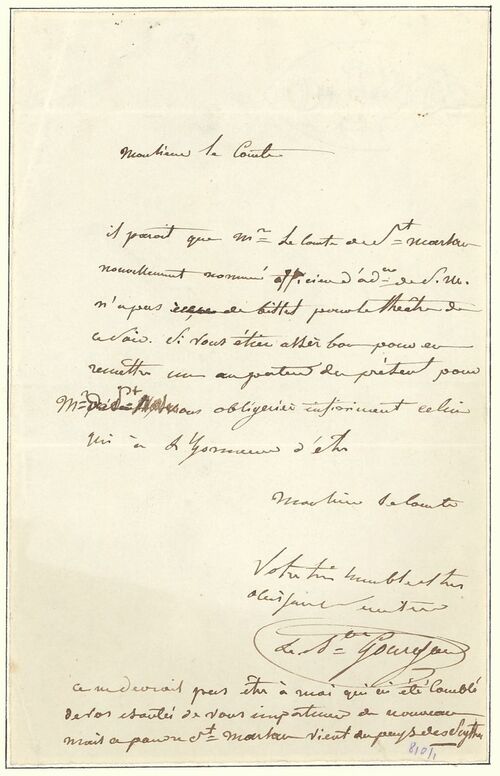 Monsieur le Comte
il parait que Mr Le Comte de St marsan
nouvellement nommé officier d'ord.ce de S. M.
n'a pas reçu de billet pour le théâtre de
ce soir. Si vous étiez assez bon pour en
remettre un au porteur du présent pour
Mr de St vous obligeriez infiniment celui
qui à l'honneur d'être
Monsieur le Comte
Votre très humble et très
obeissant Serviteur
Le Bon Gourgaud
ce ne devroit pas être à moi qui ai été Comblé
de vos bontés de vous importuner de nouveau
mais ce pauvre St marsan vient du pays des Scythes